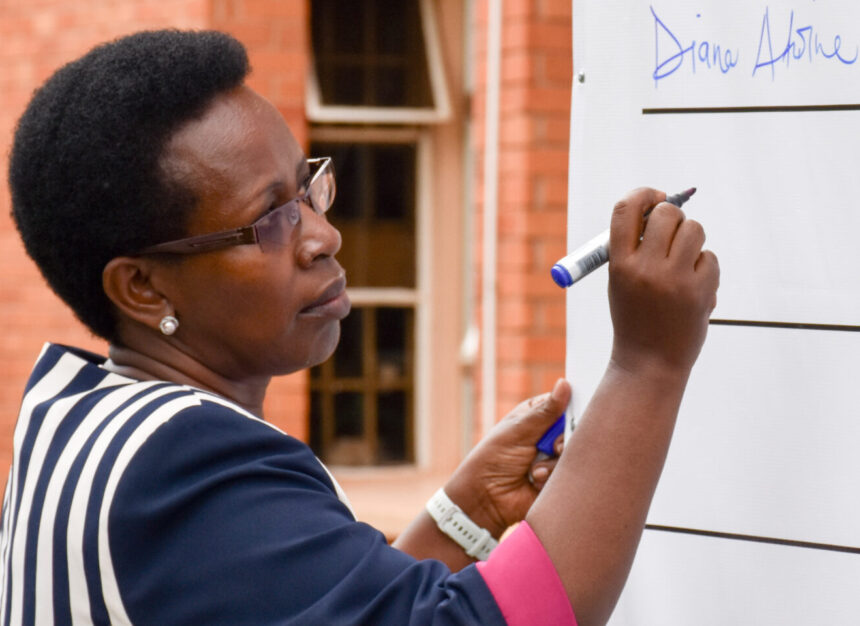 Diana Atwine